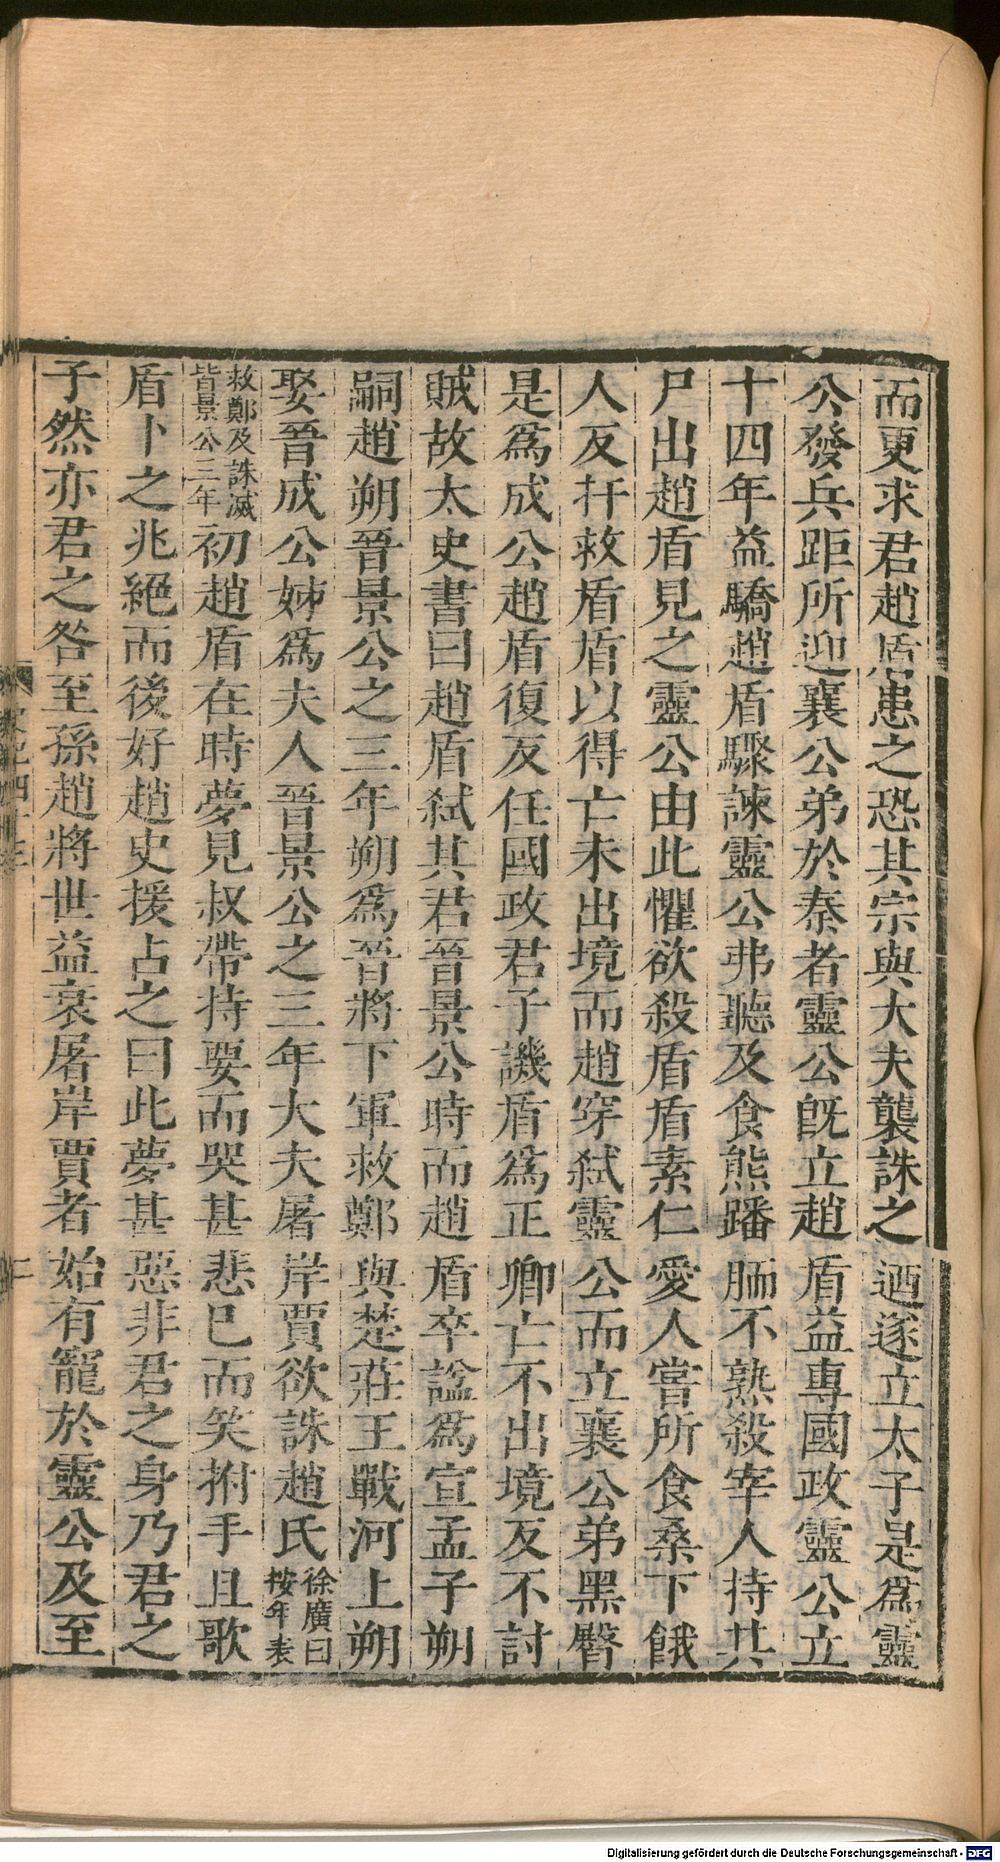 而更求君趙盾患之恐其宗與大夫襲誅之迺遂立太子是爲靈
公發兵距所迎襄公弟於秦者靈公旣立趙盾益專國政靈公立
十四年益驕趙盾驟諫靈公弗聽及食熊蹯胹不熟殺宰人持其
尸出趙盾見之靈公由此懼欲殺盾盾素仁愛人嘗所食桑下餓
人反扞救盾盾以得亡未出境而趙穿弑靈公而立襄公弟黑臀
是爲成公趙盾復反任國政君子譏盾爲正卿亡不出境反不討
賊故太史書曰趙盾弑其君晉景公時而趙盾卒諡爲宣孟子朔
嗣趙朔晉景公之三年朔爲晉將下軍救鄭與楚莊王戰河上朔
娶晉成公姊爲夫人晉景公之三年大夫屠岸賈欲誅趙氏徐廣曰按年表
救鄭及誅滅皆景公三年初趙盾在時夢見叔帶持要而哭甚悲已而笑拊手且歌
盾卜之兆絕而後好趙史援占之曰此夢甚惡非君之身乃君之
子然亦君之咎至孫趙將世益衰屠岸賈者始有寵於靈公及至
Digitalisierung gefördert durch die Deutsche Forschungsgemeinschaft - DFG